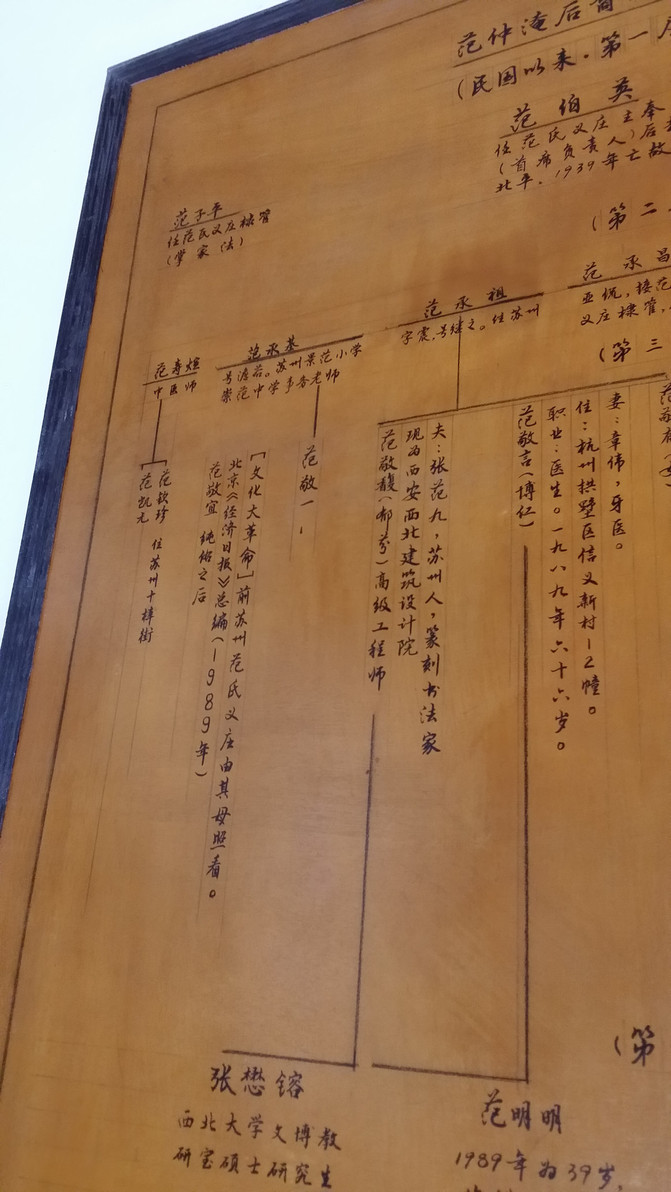 范仲淹后裔
(民国以来·第一
范伯英
任范氏义庄主奉
(首席负责人)后
北平.1939年亡故
(第二
范子平
任范氏义庄棣管
(掌家法)
范承昌
义庄棣管,
(第三
范承祖
字震,号绿之。住苏州
范承基
苏州景范小学
崇范中学事务老师
范寿烜
中医师
妻:章伟,牙医。
住:杭州拱墅区信义新村12幢。
职业:医生。一九八九年六十六岁。
范敬言(博仁)
夫:张范九,苏州人,篆刻书法家
现为西安西北建筑设计院
范敬馥(郁芬)高级工程师
范敬一
[文化大革命]前苏州范氏义庄由其母照看。
北京《经济日报》总编(1989年)
范敬宜 纯佑之后
范钦珍 住苏州十梓街
范凯元
(第
张懋镕
西北大学文博教
研室硕士研究生
范明明
1989年为39岁,